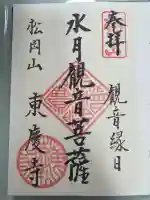 奉拝
觀音縁日
水月觀音菩薩
松岡山
東慶寺